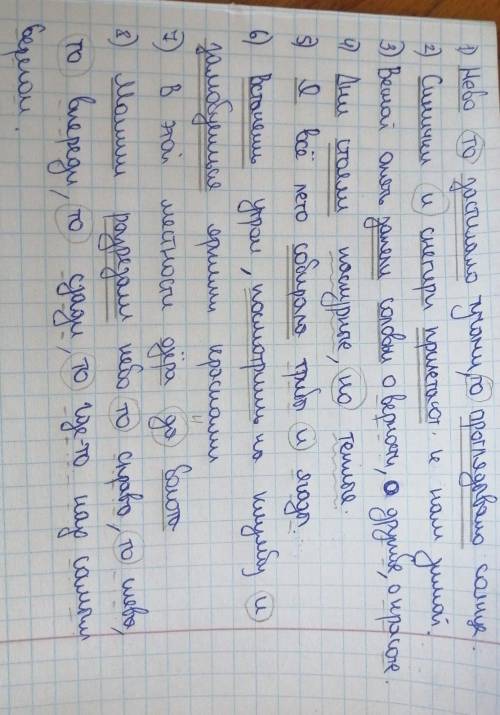 1) Небо то застилало тучами, то проглядывало солнце.
2) Синички и снегири прилетают к нам зимой.
3) Весной опять запели соловьи о верности, о дружбе, о красоте.
4) Дни стояли пасмурные, но теплые.
5) Я всё лето собирала грибы и ягоды.
6) Встанешь утром, посмотришь на клумбу и
залюбуешься яркими красками
7) В этой местности озёра да болота
8) Молнии разрезали небо то справа, то слева,
то впереди, то сзади, то где-то над самым
берегом.